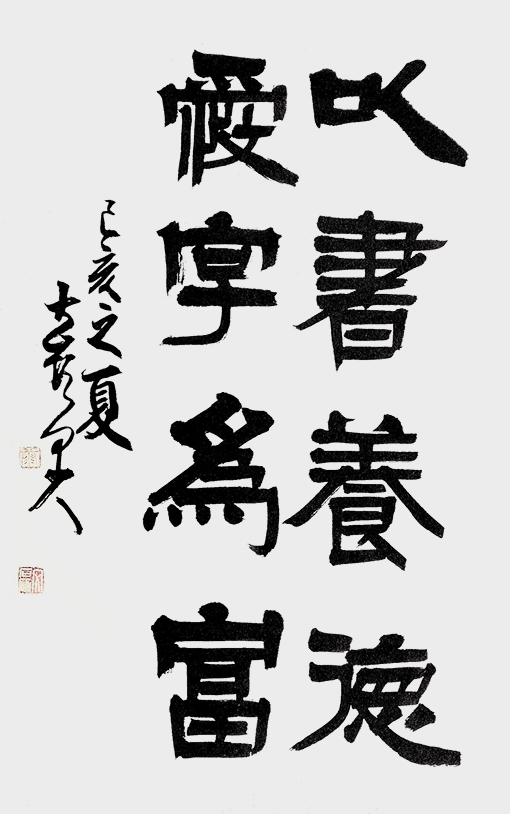 以書養德
愛字為富
己亥之夏